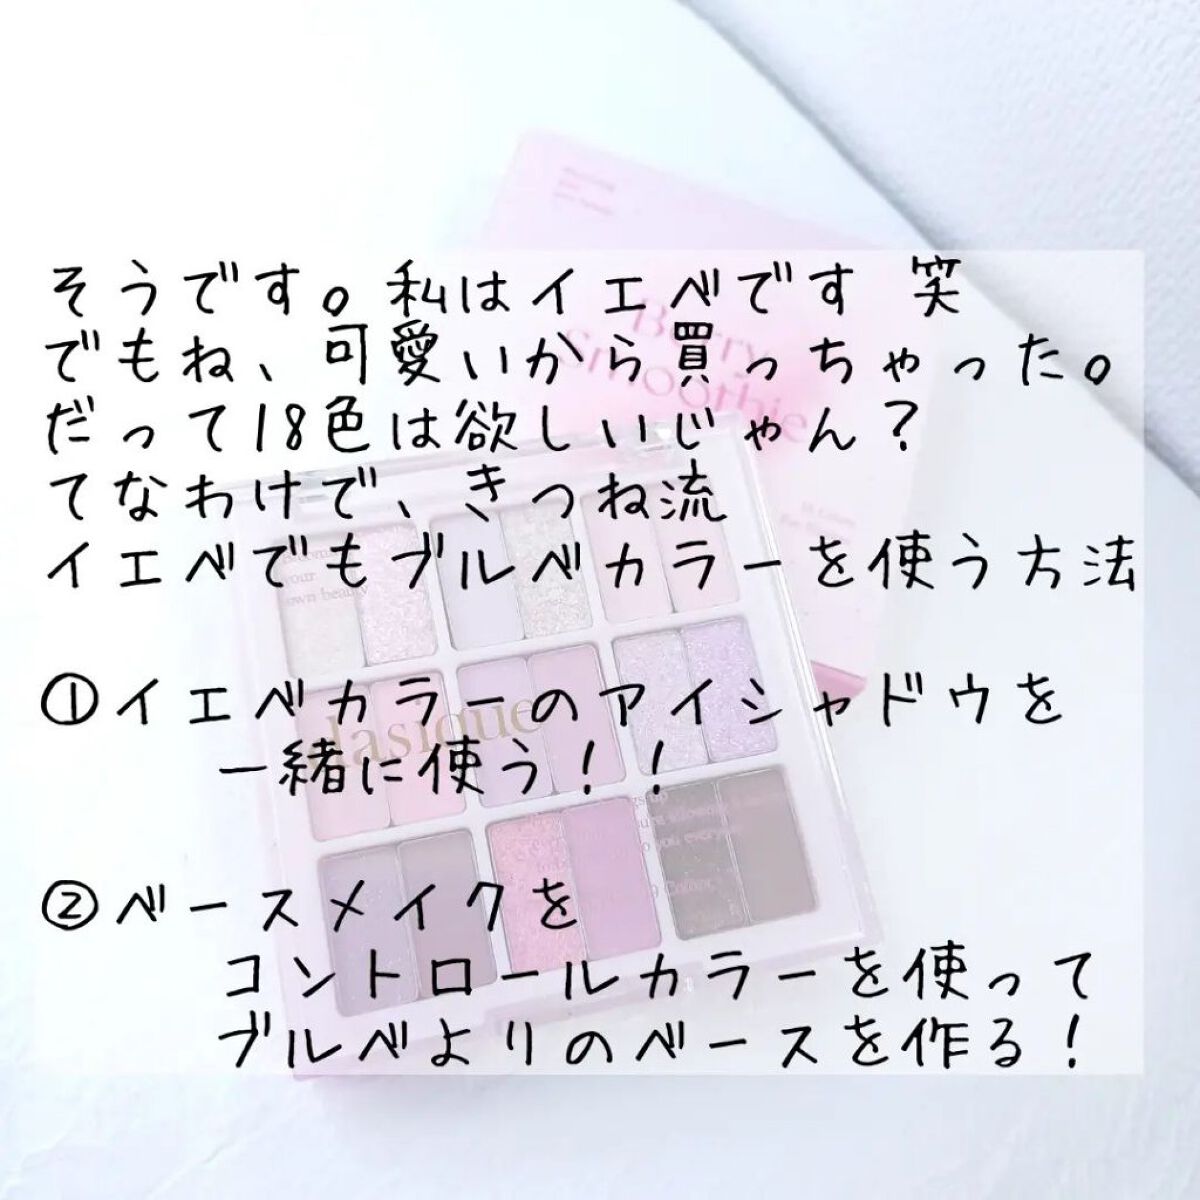 そうです。私はイエベです 笑
でもね、可愛いから買っちゃった。
だって18色は欲しいじゃん？
てなわけで、きつね流
イエベでもブルベカラーを使う方法
①イエベカラーのアイシャドウを
一緒に使う！！
②ベースメイクを
コントロールカラーを使って
ブルベよりのベースを作る！
Berry
Smoothie
your
own beauty
dasique